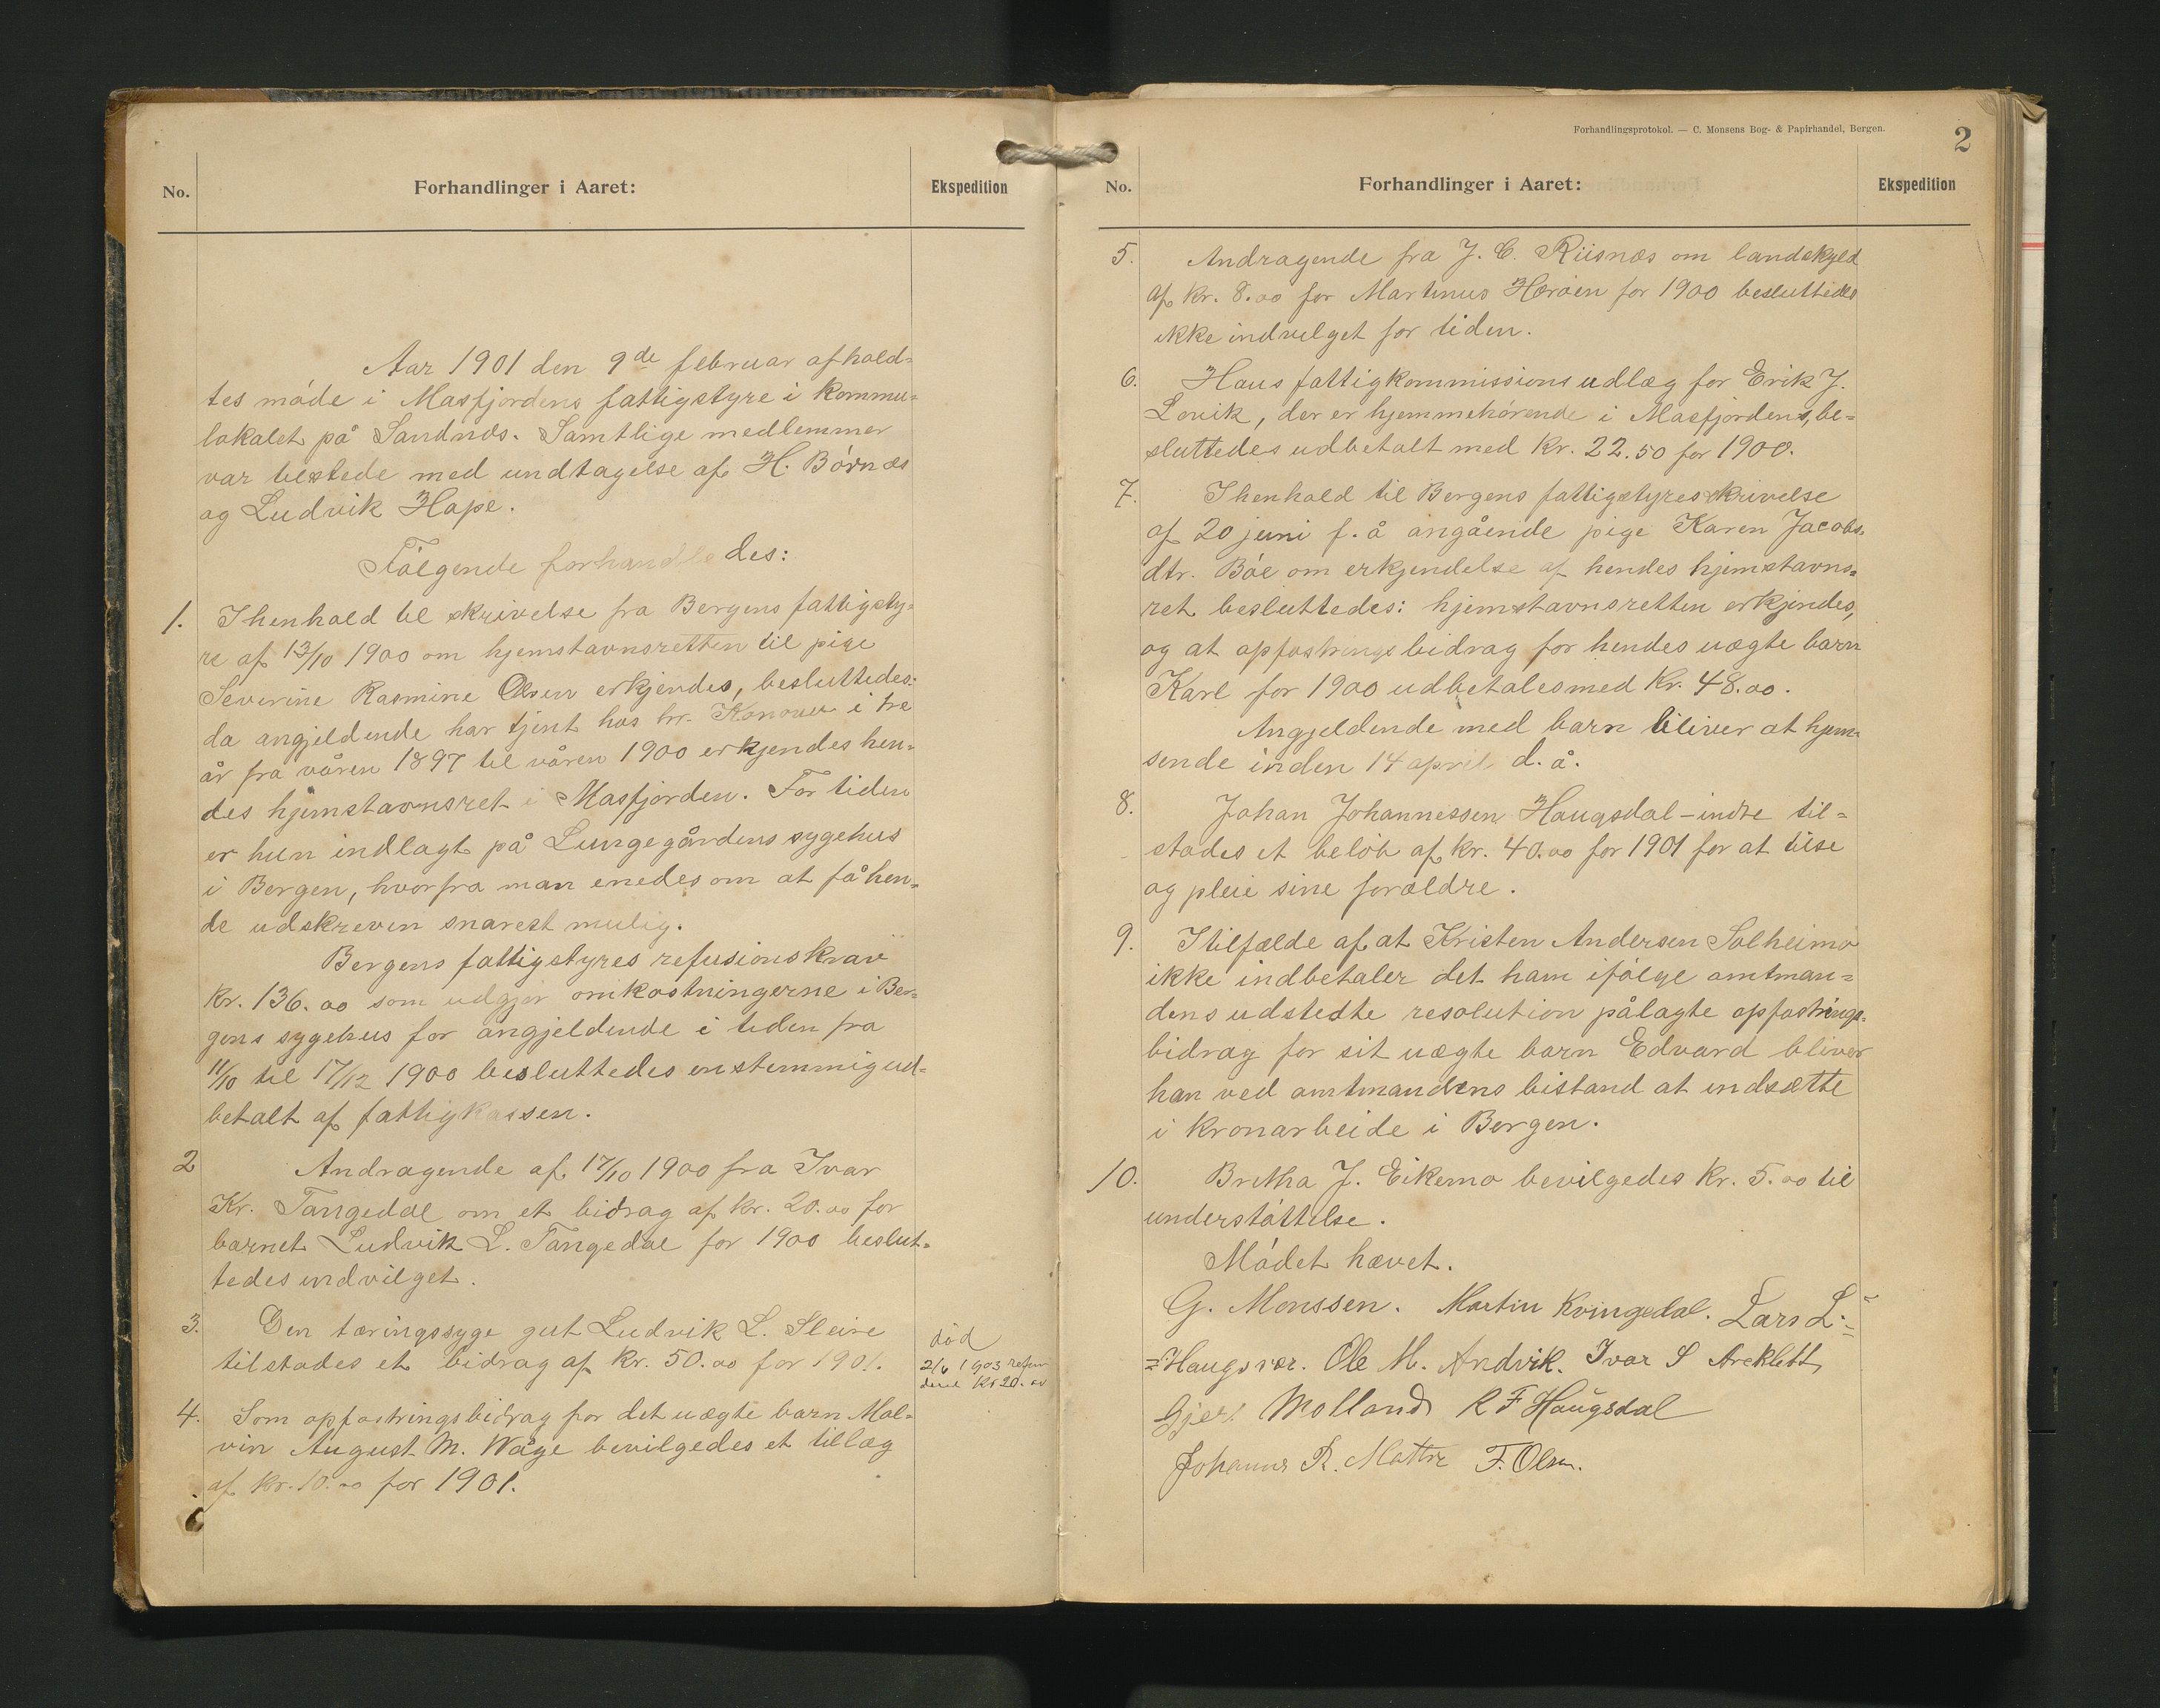 No. Forhandlinger i Aaret: Ekspedition
Aar 1901 den 9de februar afhold=
tes møde i Masfjordens fattigstyre i kommu=
lokalet på Sandnæs. Samtlige medlemmer
var tilstede med undtagelse af H. Børnæs
og Ludvik Hope.
Følgende forhandledes:
1. Ihenhold til skrivelse fra Bergens fattigsty=
re af 13/10 1900 om hjemstavnsretten til pige
Severine Rasmine Olsen erkjendes, besluttedes:
da angjeldende har tjent hos hr. Konow i tre
år fra våren 1897 til våren 1900 erkjendes hen=
des hjemstavnsret i Masfjorden. For tiden
er hun indlagt på Lungegårdens sygehus
i Bergen, hvorfra man enedes om at få hen=
de udskreven snarest mulig.
Bergens fattigstyres refusionskrav
Kr. 136.00 som udgjør omkostningerne i Ber=
gens sygehus for angjeldende i tiden fra
11/10 til 17/12 1900 besluttedes enstemmig ud=
betalt af fattigkassen.
2 Andragende af 17/10 1900 fra Ivar
Kr. Tangedal om et bidrag af kr. 20.00 for
barnet Ludvik L. Tangedal for 1900 beslut=
tedes indvilget.
3. Den tæringssyge gut Ludvik L. Sleire
tilstodes et bidrag af kr. 50.00 for 1901.
død
2/6 1903 refun
deret Kr 20.00
4. Som opfostringsbidrag for det uægte barn Mal=
vin August M. Wåge bevilgedes et tillæg
af kr. 10.00 for 1901.
Forhandlingsprotokol. — C. Monsens Bog- & Papirhandel, Bergen.
2
No. Forhandlinger i Aaret: Ekspedition
5. Andragende fra J. C. Riisnæs om landskyld
af kr. 8.00 for Martinus Herøen for 1900 besluttedes
ikke indvilget for tiden.
6. Haus fattigkommissions udlæg for Erik J.
Lovik, der er hjemmehørende i Masfjorden, be=
sluttedes udbetalt med kr. 22.50 for 1900.
7. Ihenhold til Bergens fattigstyres skrivelse
af 20 juni f. å angående pige Karen Jacobs=
dtr. Bøe om erkjendelse af hendes hjemstavns=
ret besluttedes: hjemstavnsretten erkjendes,
og at opfostringsbidrag for hendes uægte barn
Karl for 1900 udbetales med Kr. 48.00.
Angjeldende med barn bliver at hjem=
sende inden 14 april d. å.
8. Johan Johannessen Haugsdal-indre til=
stodes et beløb af kr. 40.00 for 1901 for at tilse
og pleie sine forældre.
9. I tilfælde af at Kristen Andersen Solheim
ikke indbetaler det ham ifølge amtman=
dens udstedte resolution pålagte opfostrings=
bidrag for sit uægte barn Edvard bliver
han ved amtmandens bistand at indsætte
i kronarbeide i Bergen.
10. Britha J. Eikemo bevilgedes kr. 5.00 til
understøttelse.
Mødet hævet.
G. Monssen. Martin Kvingedal. Lars L.=
=Haugsvær. Ole M. Andvik. Ivar S Areklett
Gjert Molland R F Haugsdal
Johannes R. Matre F. Olsen.